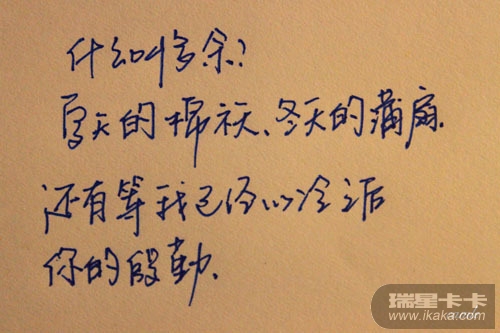 什么叫多余?
夏天的棉袄、冬天的蒲扇.
还有等我已经心冷之后
你的殷勤.
瑞星卡卡
www.ikaka.com